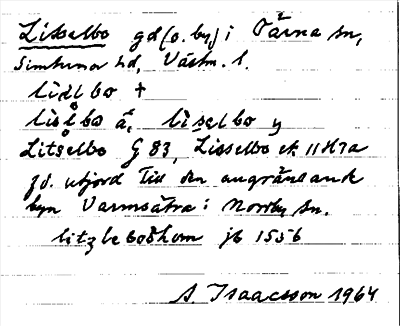 Lisselbo gd (o. by) i Tärna sn,
Simtuna hd, Västm. l.
lislbo +
lislbo ä, lisęlbo y
Litselbo G 83, Lisselbo ek 11 H7a
gd. utjord till den angränsande
byn Varmsätra i Norrby sn.
litzlebodhum jb 1556
A. Isaacsson 1964